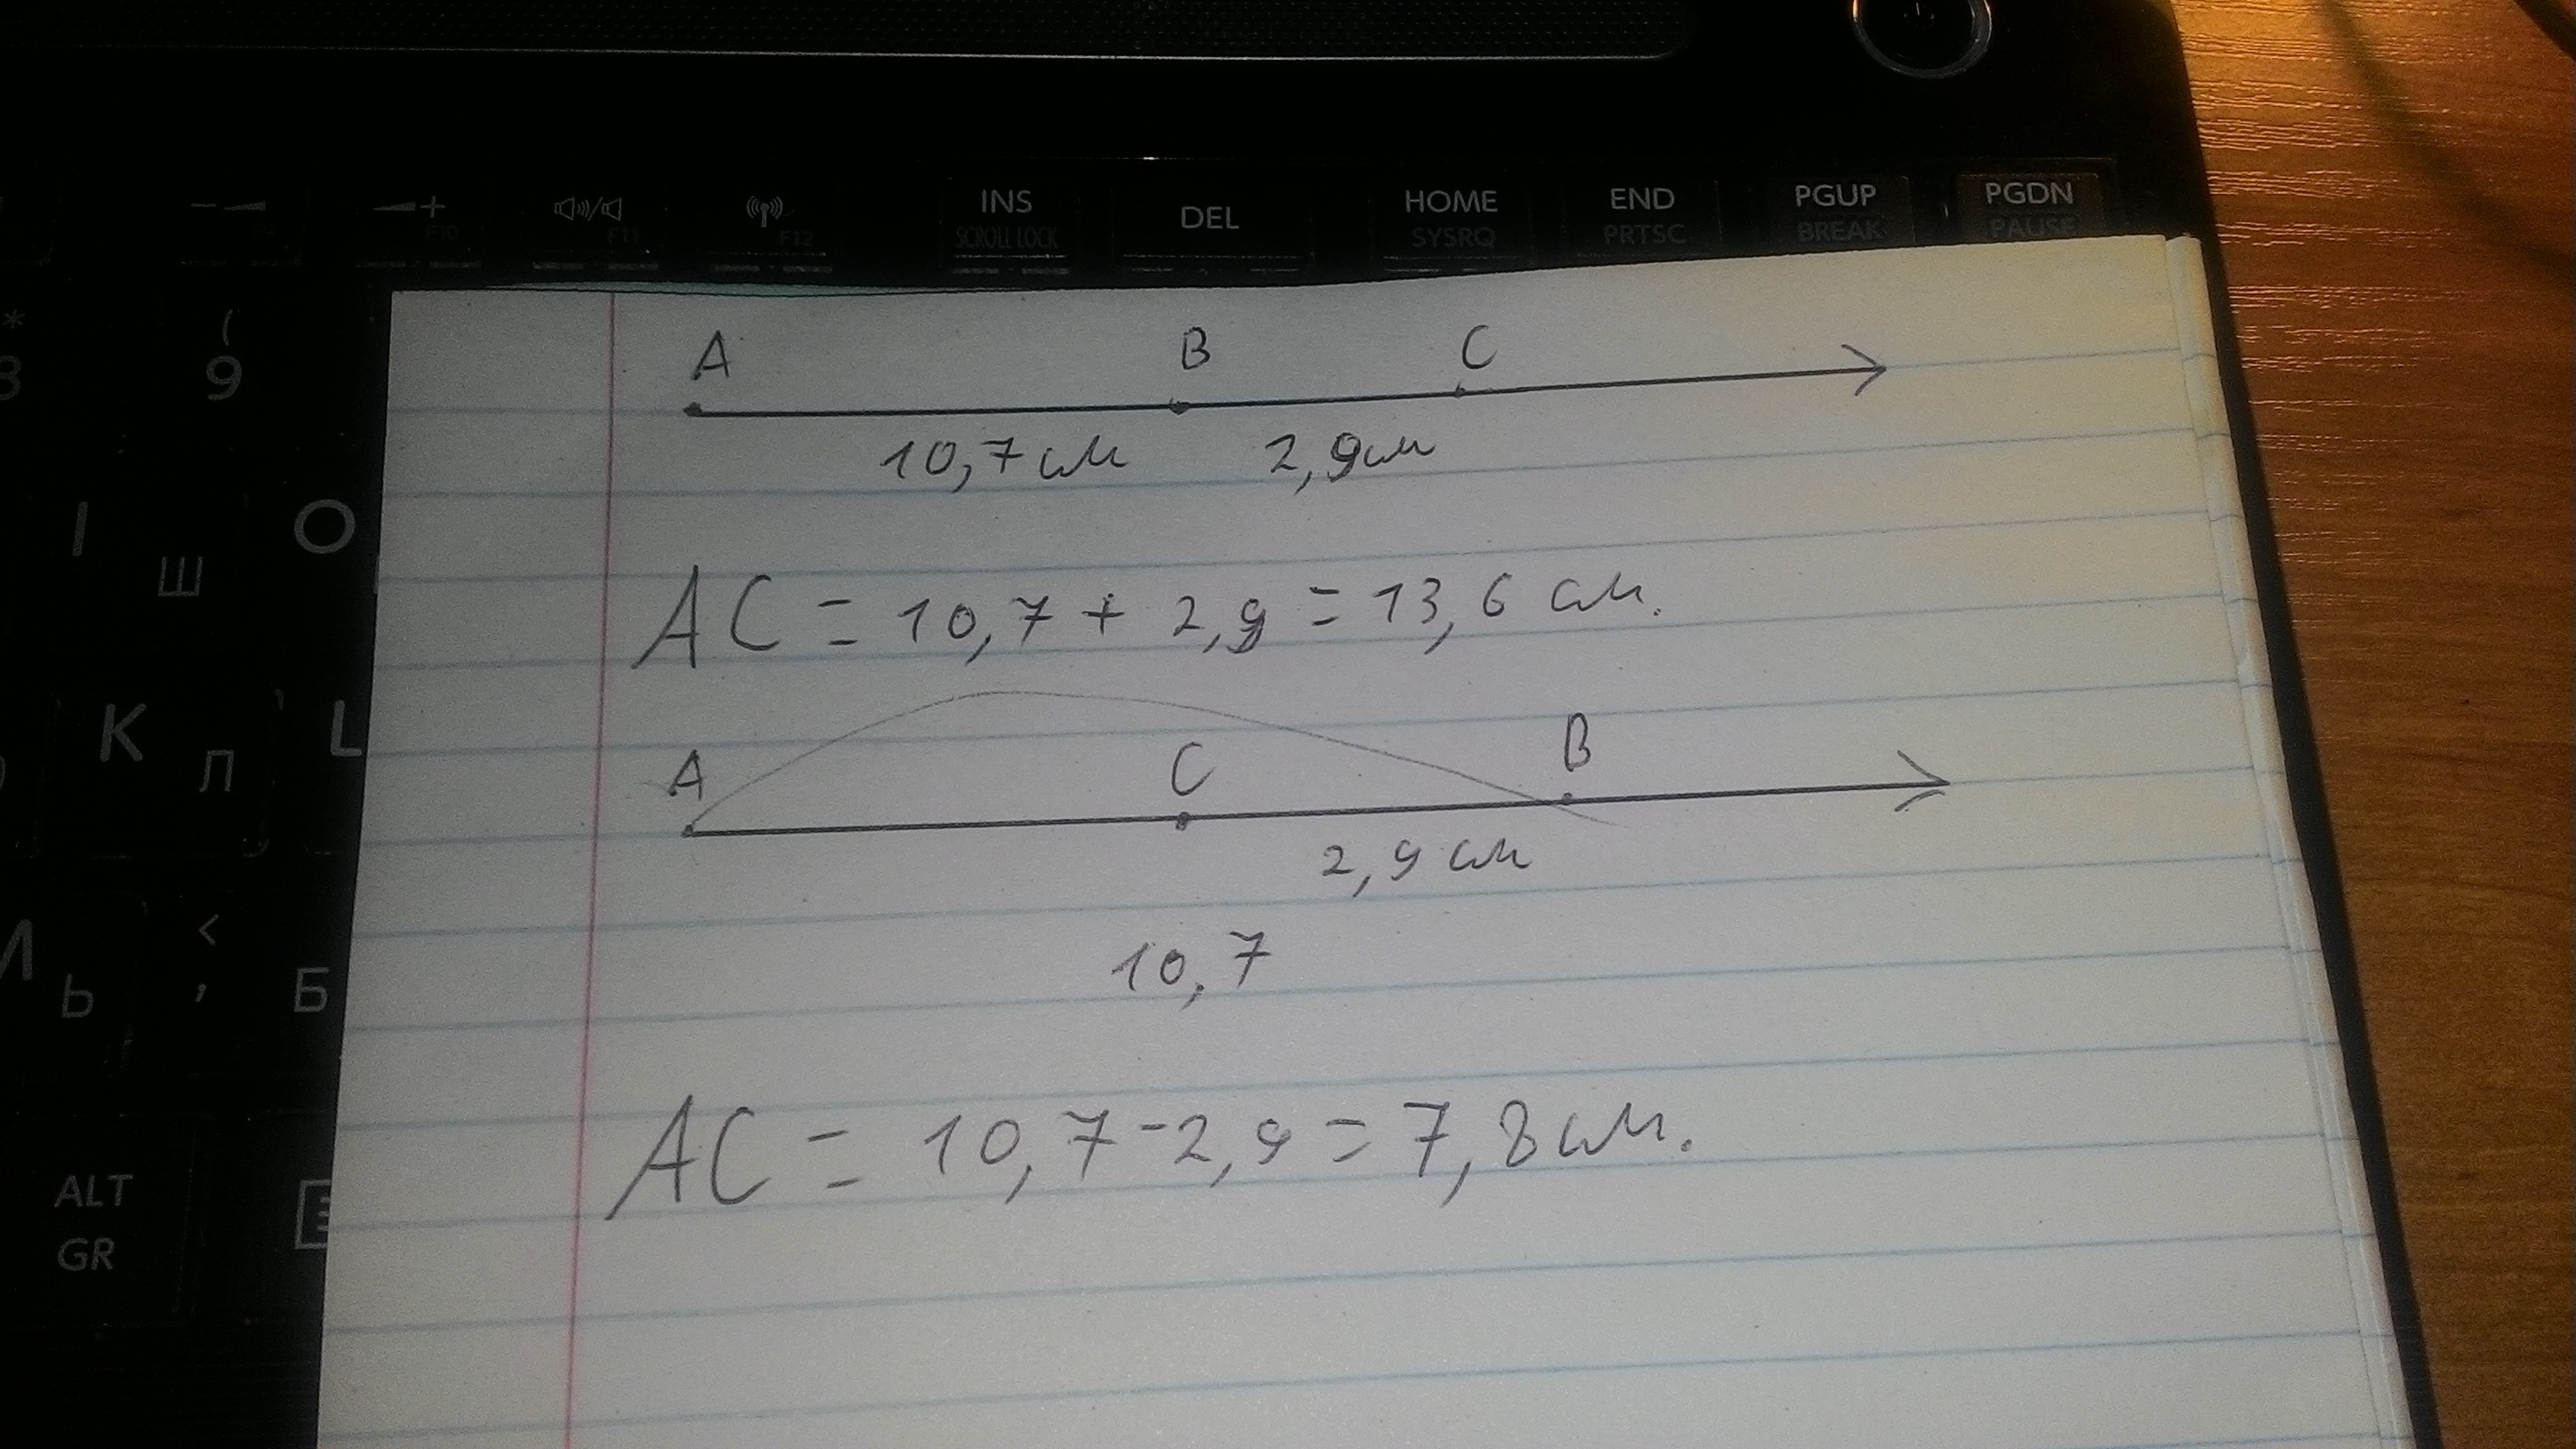 INS
SCROLL LOCK
DEL
HOME
SYSRQ
END
PRTSC
PGUP
BREAK
PGDN
PAUSE
F10
F11
F12
* 8
( 9
I Ш
O
K Л
L
Ь
< ,
Б
ALT
GR
A B C
10,7 см 2,9 см
AC = 10,7 + 2,9 = 13,6 см.
A C B
2,9 см
10,7
AC = 10,7 - 2,9 = 7,8 см.